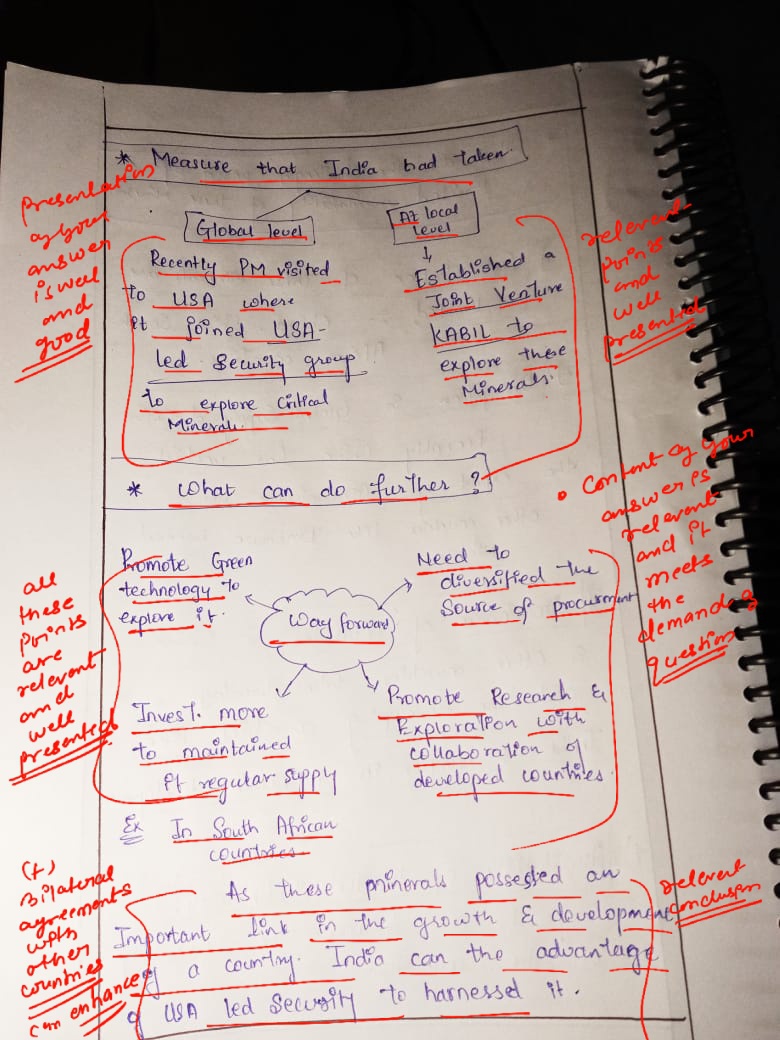 * Measure that India had taken.
Global level
At local
level
Recently PM visited
to USA where
it joined USA-
led Security group
to explore critical
Minerals.
Established a
Joint Venture
KABIL to
explore these
Minerals.
Presentation
of your
answer
is well
and
good
relevant
points
and
well
presented
* What can do further ?
• Content of your
answer is
relevant
and it
meets
the
demand of
question
Promote Green
technology to
explore it.
Need to
diversified the
Source of procurment
Way forward
Invest more
to maintained
it regular supply
Ex In South African
countries
Promote Research &
Exploration with
collaboration of
developed countries.
all
these
points
are
relevant
and
well
presented
As these minerals possessed an
Important link in the growth & development
of a country. India can the advantage
of USA led Security to harnessed it.
(+)
Bilateral
agreements
with
other
countries
can enhance
relevent
conclusion